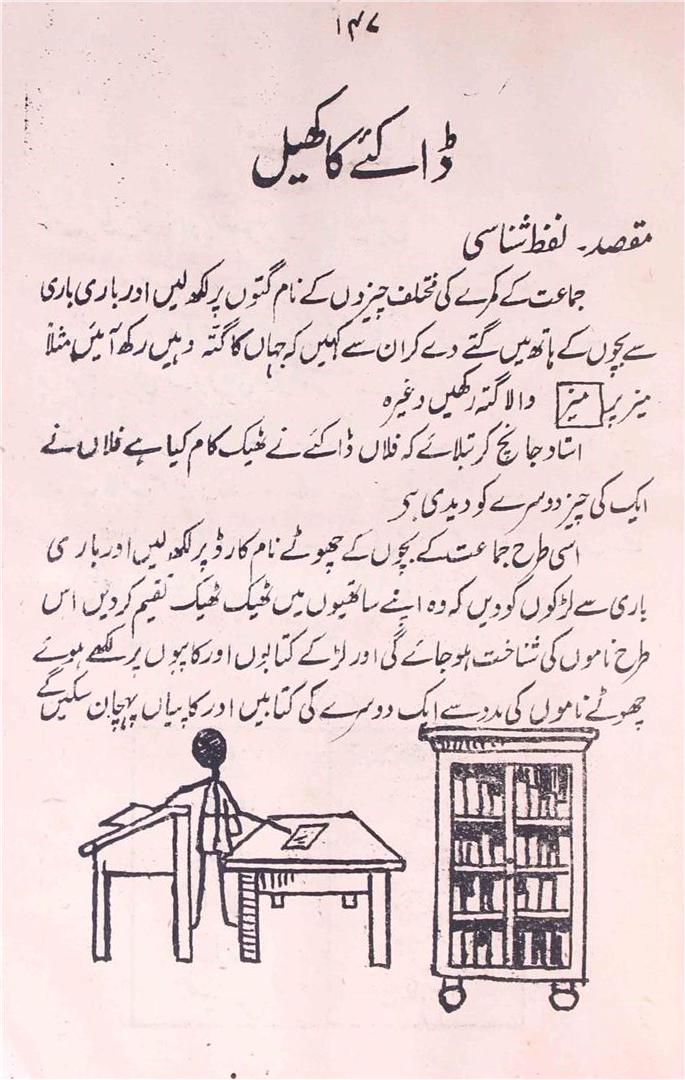 ۱۴۷
ڈاکئے کا کھیل
مقصد۔ لفظ شناسی
جماعت کے کمرے کی مختلف چیزوں کے نام گتوں پر لکھ لیں اور باری باری
سے بچوں کے ہاتھ میں گتے دے کر ان سے کہیں کہ جہاں کا گتہ وہیں رکھ آئیں مثلاً
میز پر میز والا گتہ رکھیں وغیرہ
استاد جانچ کر بتلائے کہ فلاں ڈاکئے نے ٹھیک کام کیا ہے فلاں نے
ایک کی چیز دوسرے کو دیدی ہے
اسی طرح جماعت کے بچوں کے چھوٹے نام کارڈ پر لکھ لیں اور باری
باری سے لڑکوں کو دیں کہ وہ اپنے ساتھیوں میں ٹھیک ٹھیک تقسیم کر دیں اس
طرح ناموں کی شناخت ہو جائے گی اور لڑکے کتابوں اور کاپیوں پر لکھے ہوئے
چھوٹے ناموں کی مدد سے ایک دوسرے کی کتابیں اور کاپیاں پہچان سکیں گے